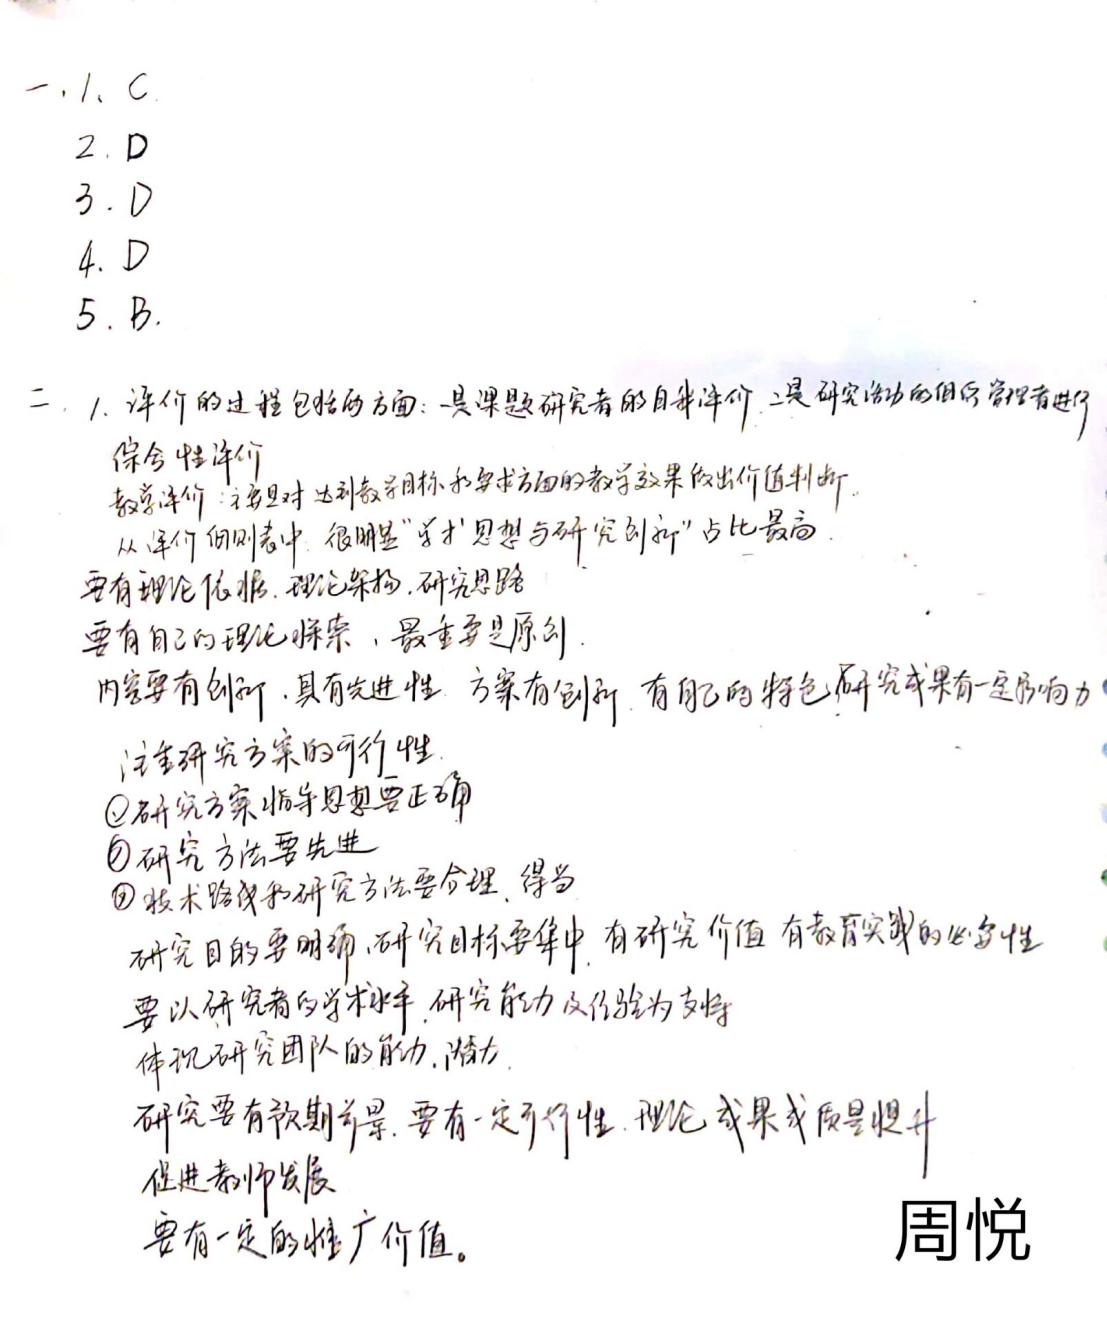 一.1、C.
2.D
3.D
4.D
5.B.
二.1.评价的过程包括两方面:一是课题研究者的自我评价 二是研究活动的组织管理者进行
综合性评价
教学评价:主要是对达到教学目标和要求方面的教学效果做出价值判断.
从评价细则表中.很明显"学术思想与研究创新"占比最高.
要有理论依据.理论架构.研究思路
要有自己的理论探索,最重要是原创.
内容要有创新.具有先进性.方案有创新.有自己的特色 研究成果有一定影响力
注重研究方案的可行性.
①研究方案指导思想要正确
②研究方法要先进
③技术路线和研究方法要合理、得当
研究目的要明确.研究目标要集中.有研究价值 有教育实践的必要性
要以研究者的学术水平.研究能力及经验为支持
体现研究团队的能力.潜力.
研究要有预期前景.要有一定可行性.理论成果或质量提升
促进教师发展
要有一定的推广价值。
周悦